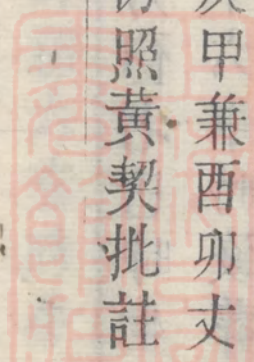 甲兼酉卯丈
照黃契批註